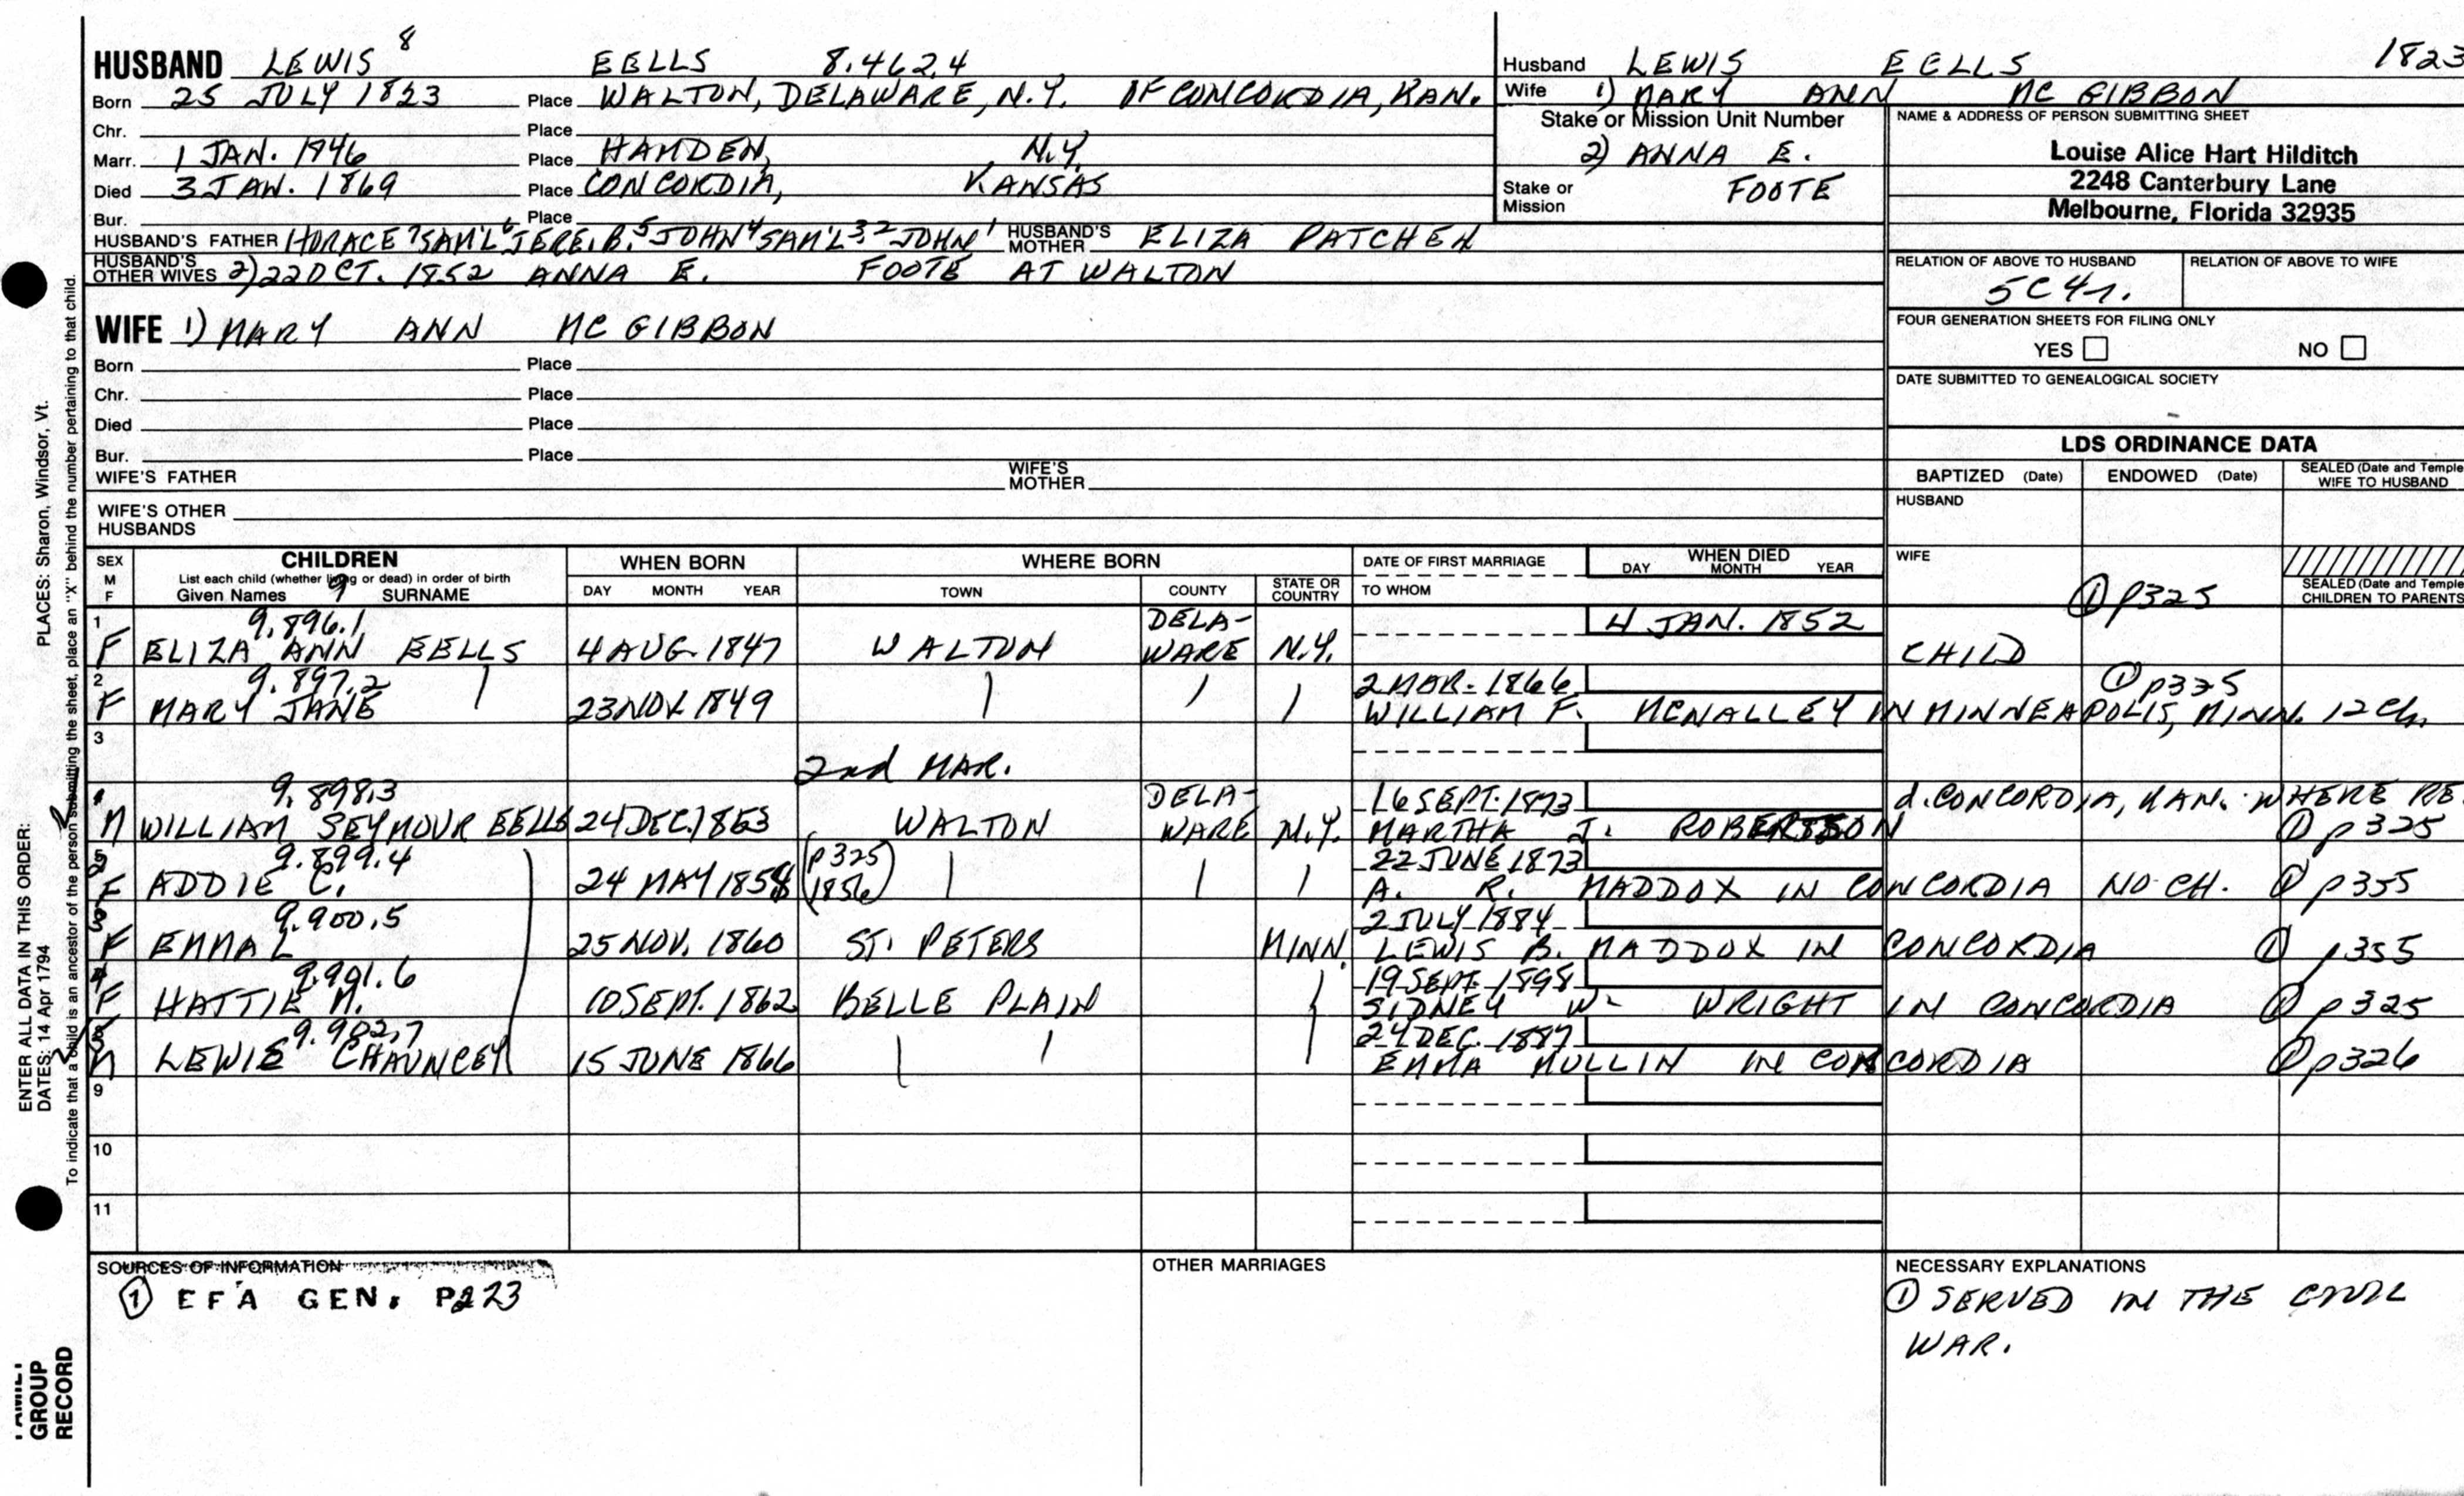 HUSBAND LEWIS 8 EELLS 8.462.4
Born 25 JULY 1823 Place WALTON, DELAWARE, N.Y. OF CONCORDIA, KAN.
Chr. Place
Marr. 1 JAN. 1946 Place HAMDEN, N.Y.
Died 3 JAN. 1869 Place CONCORDIA, KANSAS
Bur. Place
HUSBAND'S FATHER HORACE 7 SAM'L 6 JERE. B. 5 JOHN 4 SAM'L 3,2 JOHN 1 HUSBAND'S MOTHER ELIZA PATCHEN
HUSBAND'S OTHER WIVES 2) 22 OCT. 1852 ANNA E. FOOTE AT WALTON
Husband LEWIS EELLS 1823
Wife 1) MARY ANN MC GIBBON
Stake or Mission Unit Number
2) ANNA E.
Stake or Mission FOOTE
NAME & ADDRESS OF PERSON SUBMITTING SHEET
Louise Alice Hart Hilditch
2248 Canterbury Lane
Melbourne, Florida 32935
RELATION OF ABOVE TO HUSBAND RELATION OF ABOVE TO WIFE
5C4r.
FOUR GENERATION SHEETS FOR FILING ONLY
YES NO
DATE SUBMITTED TO GENEALOGICAL SOCIETY
WIFE 1) MARY ANN MC GIBBON
Born Place
Chr. Place
Died Place
Bur. Place
WIFE'S FATHER WIFE'S MOTHER
WIFE'S OTHER HUSBANDS
LDS ORDINANCE DATA
BAPTIZED (Date) ENDOWED (Date) SEALED (Date and Temple WIFE TO HUSBAND
HUSBAND
WIFE
SEALED (Date and Temple CHILDREN TO PARENTS
SEX M F CHILDREN WHEN BORN WHERE BORN DATE OF FIRST MARRIAGE WHEN DIED
List each child (whether living or dead) in order of birth DAY MONTH YEAR
Given Names 9 SURNAME DAY MONTH YEAR TOWN COUNTY STATE OR COUNTRY TO WHOM
1 9.896.1 DELA- 4 JAN. 1852 ① p325
F ELIZA ANN EELLS 4 AUG. 1847 WALTON WARE N.Y. CHILD
2 9.897.2 2 MAR. 1866 ① p335
F MARY JANE 23 NOV. 1849 WILLIAM F. MCNALLEY IN MINNEAPOLIS, MINN. 12 Ch.
3
2nd MAR.
9.898.3 DELA- 16 SEPT. 1873 d. CONCORDIA, KAN. WHERE RE
M WILLIAM SEYMOUR EELLS 24 DEC. 1853 WALTON WARE N.Y. MARTHA J. ROBERTSON ① p325
9.899.4 (p325 22 JUNE 1873
F ADDIE C. 24 MAY 1858 1856) A. R. MADDOX IN CONCORDIA NO CH. ① p355
9.900.5 2 JULY 1884
F EMMA L 25 NOV. 1860 ST. PETERS MINN. LEWIS B. MADDOX IN CONCORDIA ① p355
9.901.6 19 SEPT. 1898
F HATTIE M. 10 SEPT. 1862 BELLE PLAIN SIDNEY W. WRIGHT IN CONCORDIA ① p325
9.902.7 24 DEC. 1887
M LEWIS CHAUNCEY 15 JUNE 1866 EMMA MULLIN IN CONCORDIA ① p326
9
10
11
SOURCES OF INFORMATION
① EFA GEN. P223
OTHER MARRIAGES
NECESSARY EXPLANATIONS
① SERVED IN THE CIVIL
WAR.
ENTER ALL DATA IN THIS ORDER:
DATES: 14 Apr 1794 PLACES: Sharon, Windsor, Vt.
To indicate that a child is an ancestor of the person submitting the sheet, place an "X" behind the number pertaining to that child.
FAMILY
GROUP
RECORD